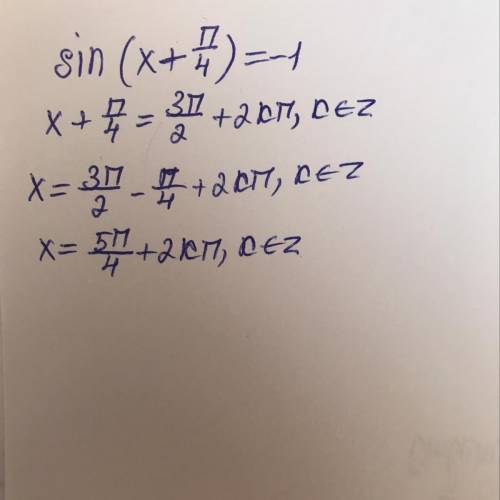 sin (x + π/4) = -1
x + π/4 = 3π/2 + 2kπ, k∈Z
x = 3π/2 - π/4 + 2kπ, k∈Z
x = 5π/4 + 2kπ, k∈Z